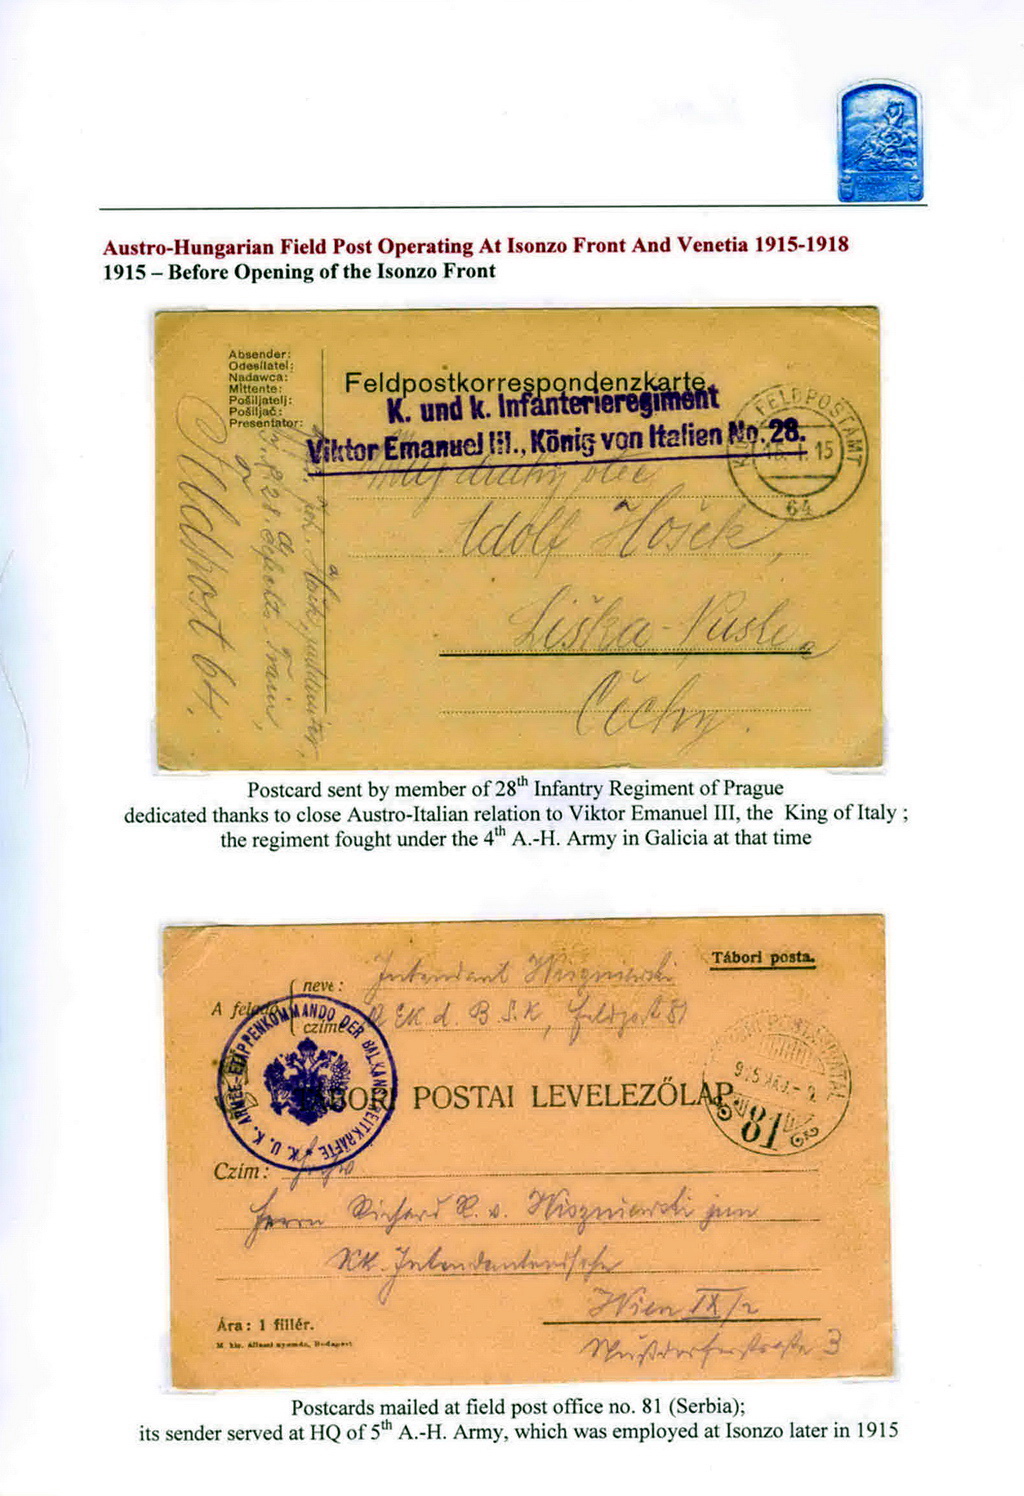 Austro-Hungarian Field Post Operating At Isonzo Front And Venetia 1915-1918
1915 – Before Opening of the Isonzo Front
Absender:
Odesílatel:
Nadawca:
Mittente:
Pošiljatelj:
Pošiljač:
Presentator:
Feldpostkorrespondenzkarte.
K. und k. Infanterieregiment
Viktor Emanuel III., König von Italien No. 28.
FELDPOSTAMT
15
64
Feldpost 64.
Adolf Hošek
Čechy.
Postcard sent by member of 28th Infantry Regiment of Prague
dedicated thanks to close Austro-Italian relation to Viktor Emanuel III, the King of Italy ;
the regiment fought under the 4th A.-H. Army in Galicia at that time
Tábori posta.
A feladó
neve :
czíme
Intendant Wiszniewski
Feldpost 81
K. U. K. ARMEE-ETAPPENKOMMANDO DER BALKANSTREITKRÄFTE
TÁBORI POSTAI LEVELEZŐLAP
81
Czím:
Herrn Richard R. v. Wiszniewski jun
Wien IX/2
Nußdorferstraße 3
Ára: 1 fillér.
M. kir. állami nyomda, Budapest
Postcards mailed at field post office no. 81 (Serbia);
its sender served at HQ of 5th A.-H. Army, which was employed at Isonzo later in 1915